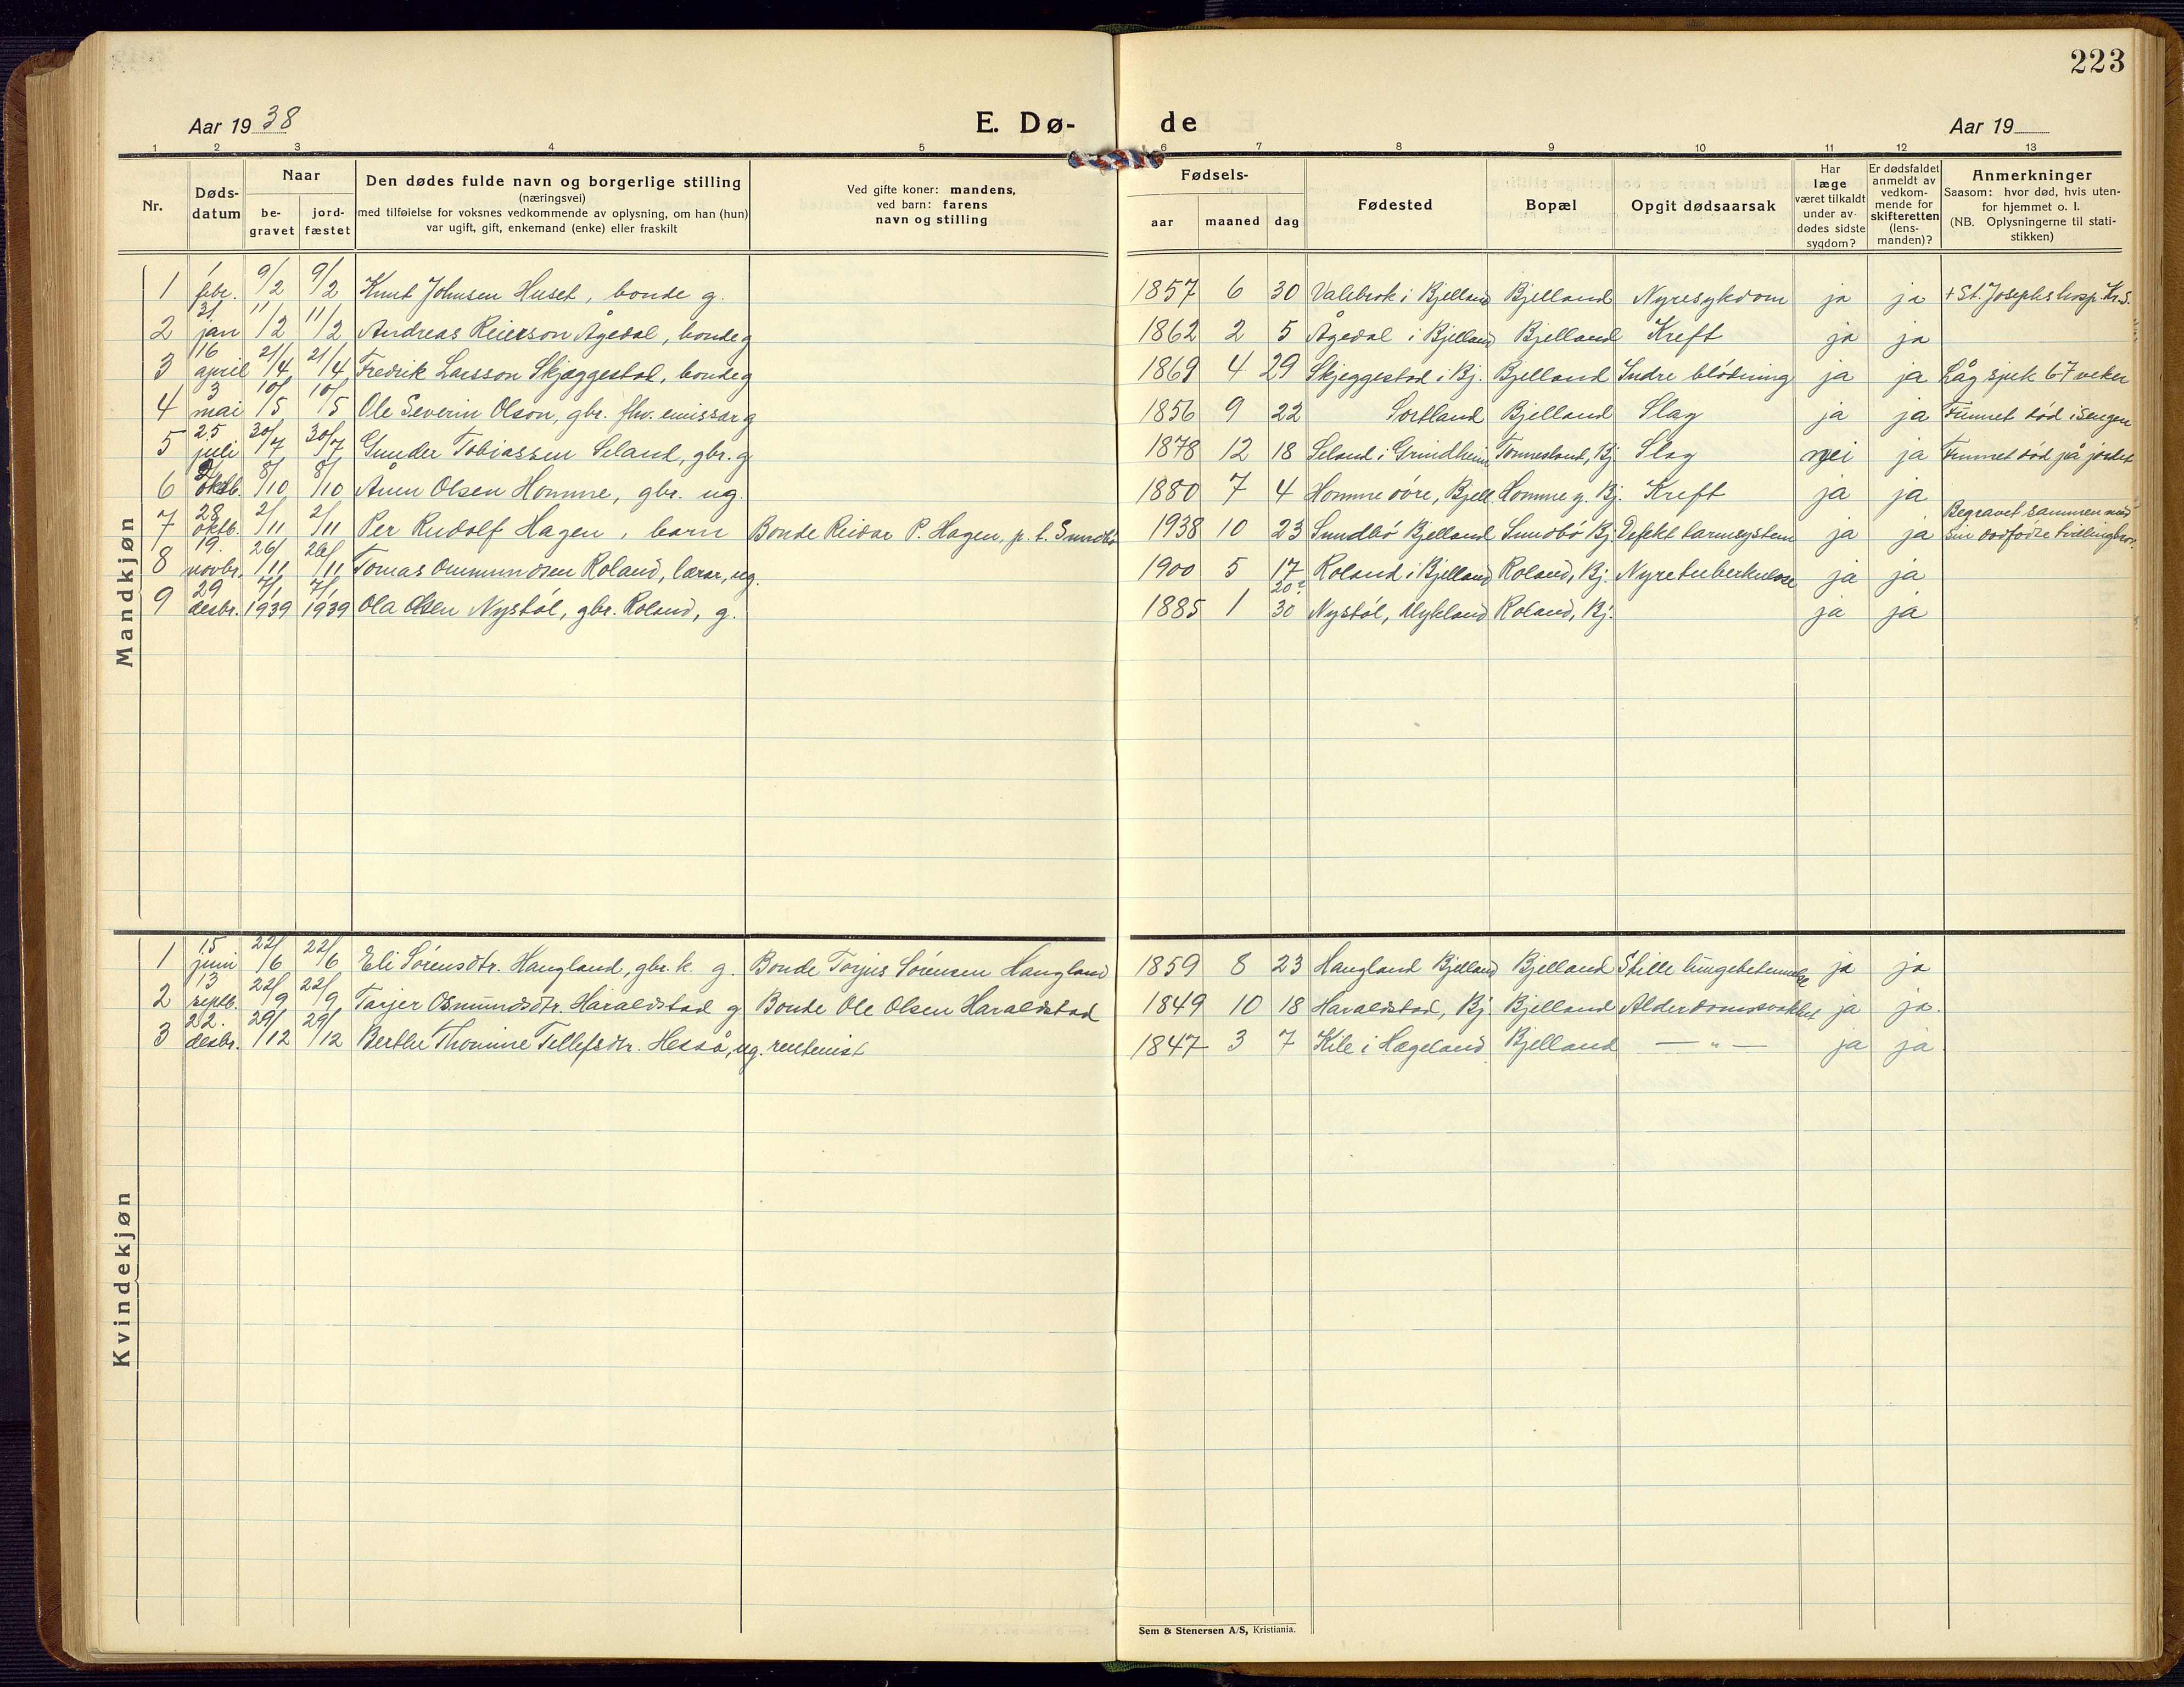 223
Aar 1938 E. Dø- de Aar 19
1 2 3 4 5 6 7 8 9 10 11 12 13
Nr. Døds-datum Naar be-gravet jord-fæstet Den dødes fulde navn og borgerlige stilling (næringsvei) med tilføielse for voksnes vedkommende av oplysning, om han (hun) var ugift, gift, enkemand (enke) eller fraskilt Ved gifte koner: mandens, ved barn: farens navn og stilling Fødsels- aar maaned dag Fødested Bopæl Opgit dødsaarsak Har læge været tilkaldt under av-dødes sidste sygdom? Er dødsfaldet anmeldt av vedkom-mende for skifteretten (lens-manden)? Anmerkninger Saasom: hvor død, hvis uten-for hjemmet o. l. (NB. Oplysningerne til stati-stikken)
Mandkjøn
1 1 febr. 9/2 9/2 Knut Johnsen Huset, bonde g. 1857 6 30 Valebrok i Bjelland Bjelland Nyresykdom ja ja + St. Josephs hosp. Kr.S.
2 31 jan 11/2 11/2 Andreas Reierson Ågedal, bonde g 1862 2 5 Ågedal i Bjelland Bjelland Kreft ja ja
3 16 april 21/4 21/4 Fredrik Larsson Skjæggestad, bonde g 1869 4 29 Skjeggestad i Bj. Bjelland Indre blödning ja ja Låg sjuk 67 veker
4 3 mai 10/5 10/5 Ole Severin Olson, gbr. fhv. emissær g 1856 9 22 Sortland Bjelland Slag ja ja Funnet död i sengen
5 25 juli 30/7 30/7 Gunder Tobiassen Seland, gbr. g 1878 12 18 Seland i Grindheim Tonnesland, Bj. Slag nei ja Funnet död på jordet
6 oktb. 8/10 8/10 Ånen Olsen Homme, gbr. ug. 1880 7 4 Homme övre, Bjell. Homme y. Bj. Kreft ja ja
7 28 oktb. 2/11 2/11 Per Rudolf Hagen, barn Bonde Reidar P. Hagen, p. t. Sundbö 1938 10 23 Sundbö Bjelland Sundbö Bj. Defekt tarmsystem ja ja Begravet sammen med sin dödfödte tvillingbror.
8 19. novbr. 26/11 26/11 Tomas Ommundsen Roland, lærar, ug. 1900 5 17 Roland i Bjelland Roland, Bj. Nyretuberkulose ja ja
9 29 desbr. 7/1 1939 7/1 1939 Ola Olsen Nystöl, gbr. Roland, g. 1885 1 20? 30 Nystöl, Mykland Roland, Bj. ja ja
Kvindekjøn
1 15 juni 22/6 22/6 Eli Sörensdtr. Haugland, gbr. k. g. Bonde Torjus Sörensen Haugland 1859 8 23 Haugland Bjelland Bjelland Stille lungebetennelse ja ja
2 13 septb. 22/9 22/9 Tarjer Osmundsdtr. Haraldstad g Bonde Ole Olsen Haraldstad 1849 10 18 Haraldstad, Bj. Bjelland Alderdomssvakhet ja ja.
3 22. desbr. 29/12 29/12 Berthe Thomine Tellefsdtr. Hesså, ug. rentenist 1847 3 7 Kile i Hægeland Bjelland — " — ja ja
Sem & Stenersen A/S, Kristiania.